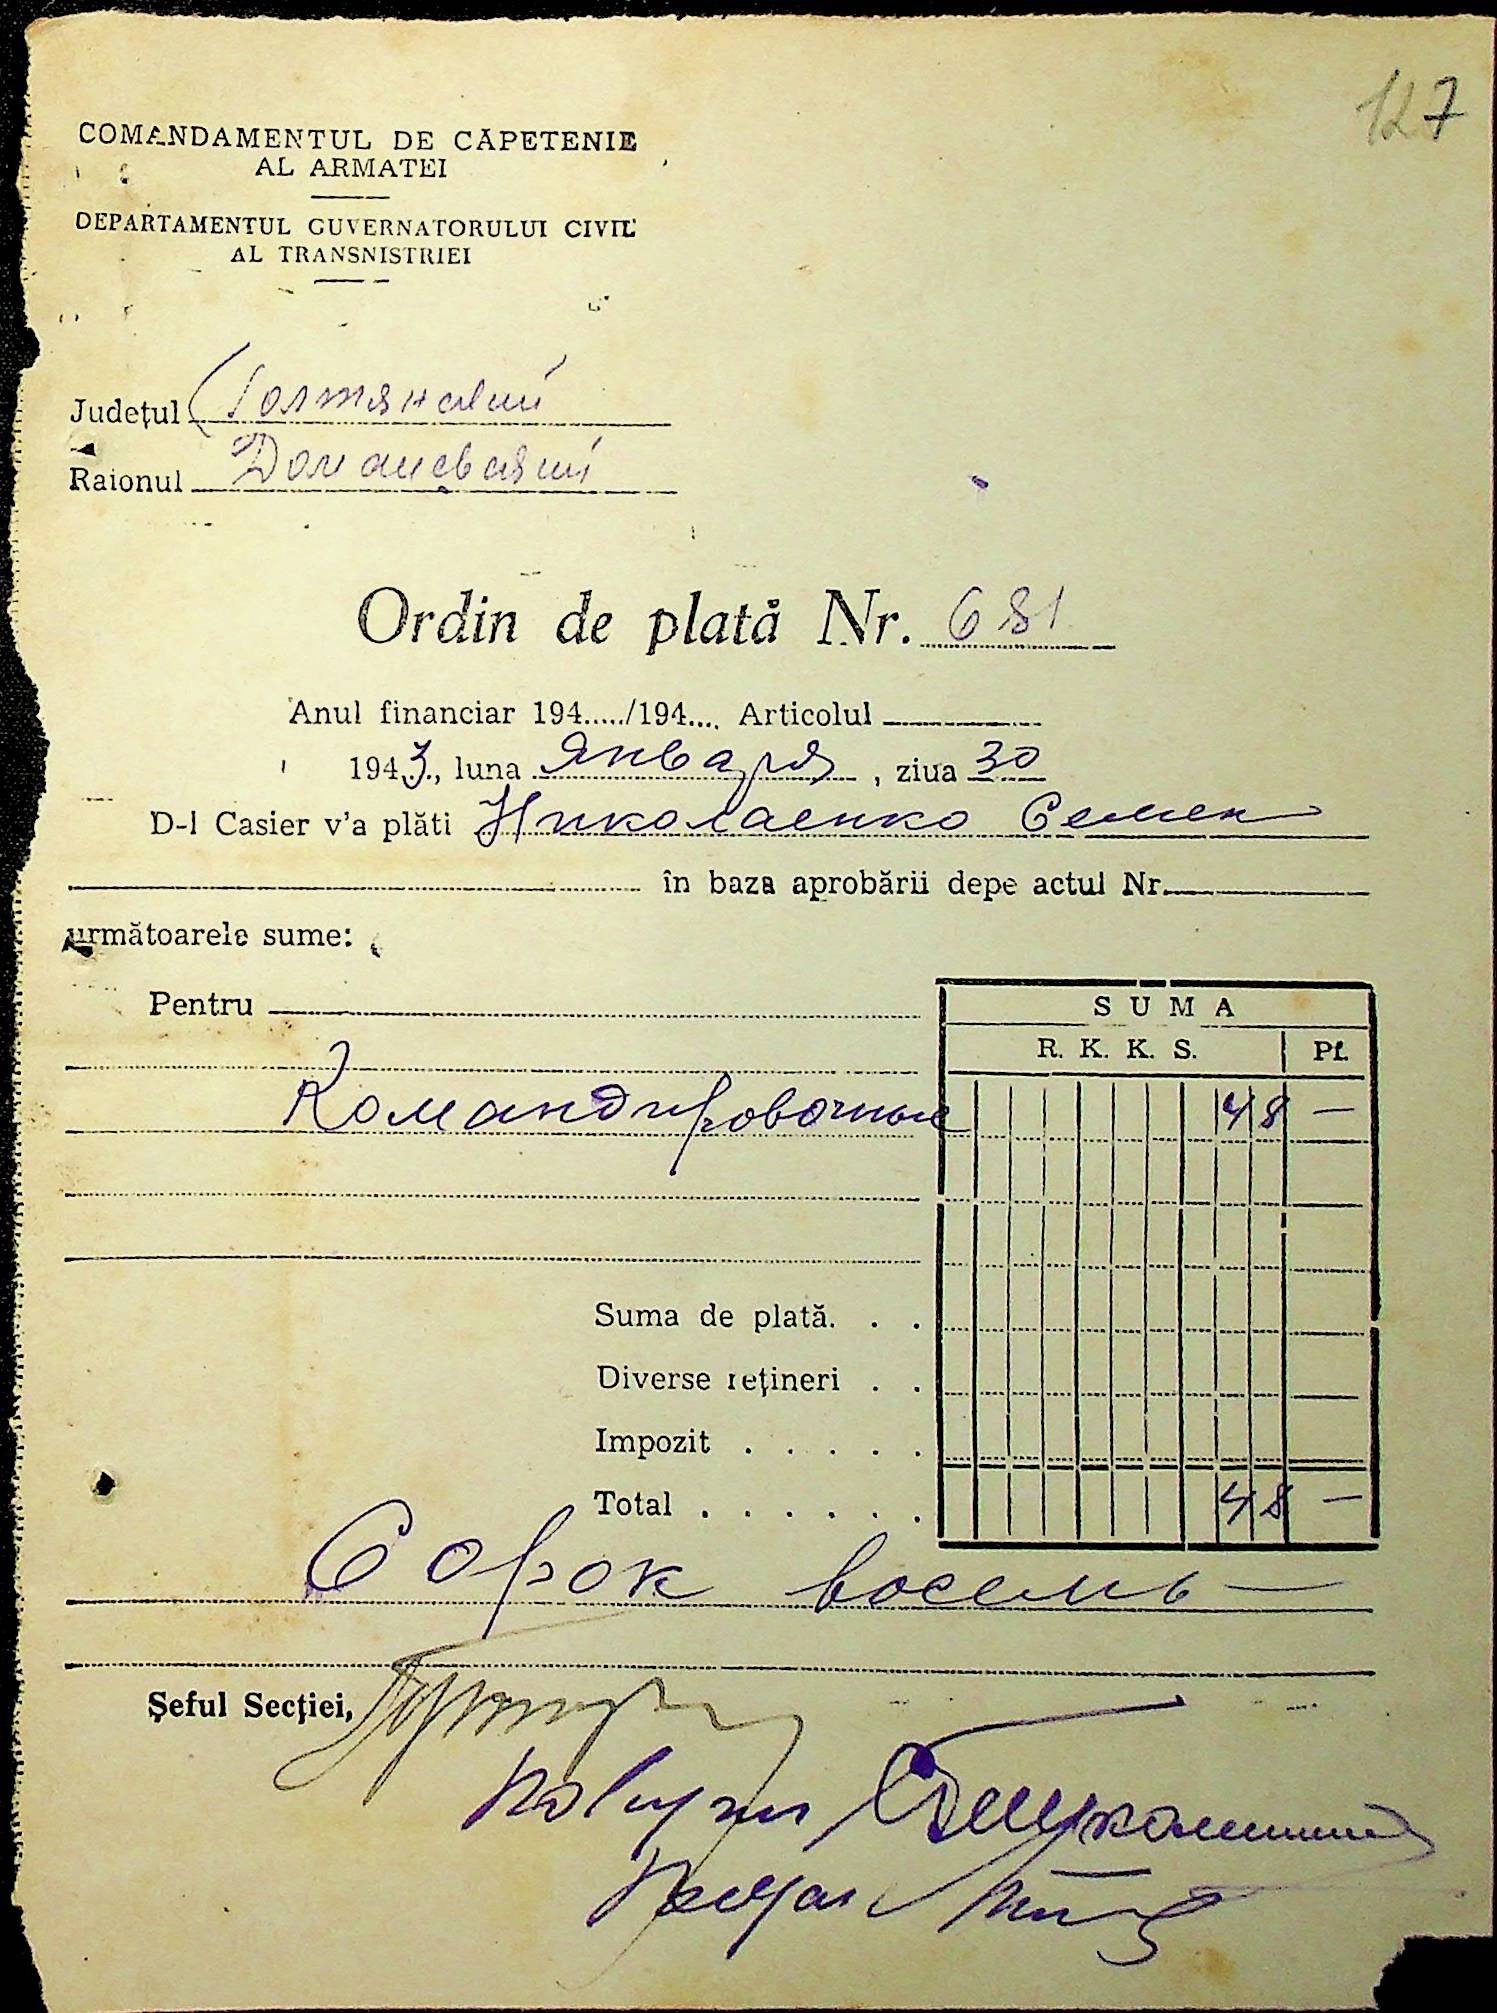 127
COMANDAMENTUL DE CĂPETENIE
AL ARMATEI
DEPARTAMENTUL GUVERNATORULUI CIVIL
AL TRANSNISTRIEI
Județul Голтянский
Raionul Доманевский
Ordin de plată Nr. 681
Anul financiar 194...../194.... Articolul
1943., luna Января, ziua 30
D-l Casier v'a plăti Николаенко Семен
în baza aprobării depe actul Nr.
următoarele sume:
Pentru
SUMA
R. K. K. S. Pf.
Командировочные 48 —
Suma de plată. . .
Diverse rețineri . .
Impozit . . . . .
Total . . . . . . 48 —
Сорок восемь —
Șeful Secției,